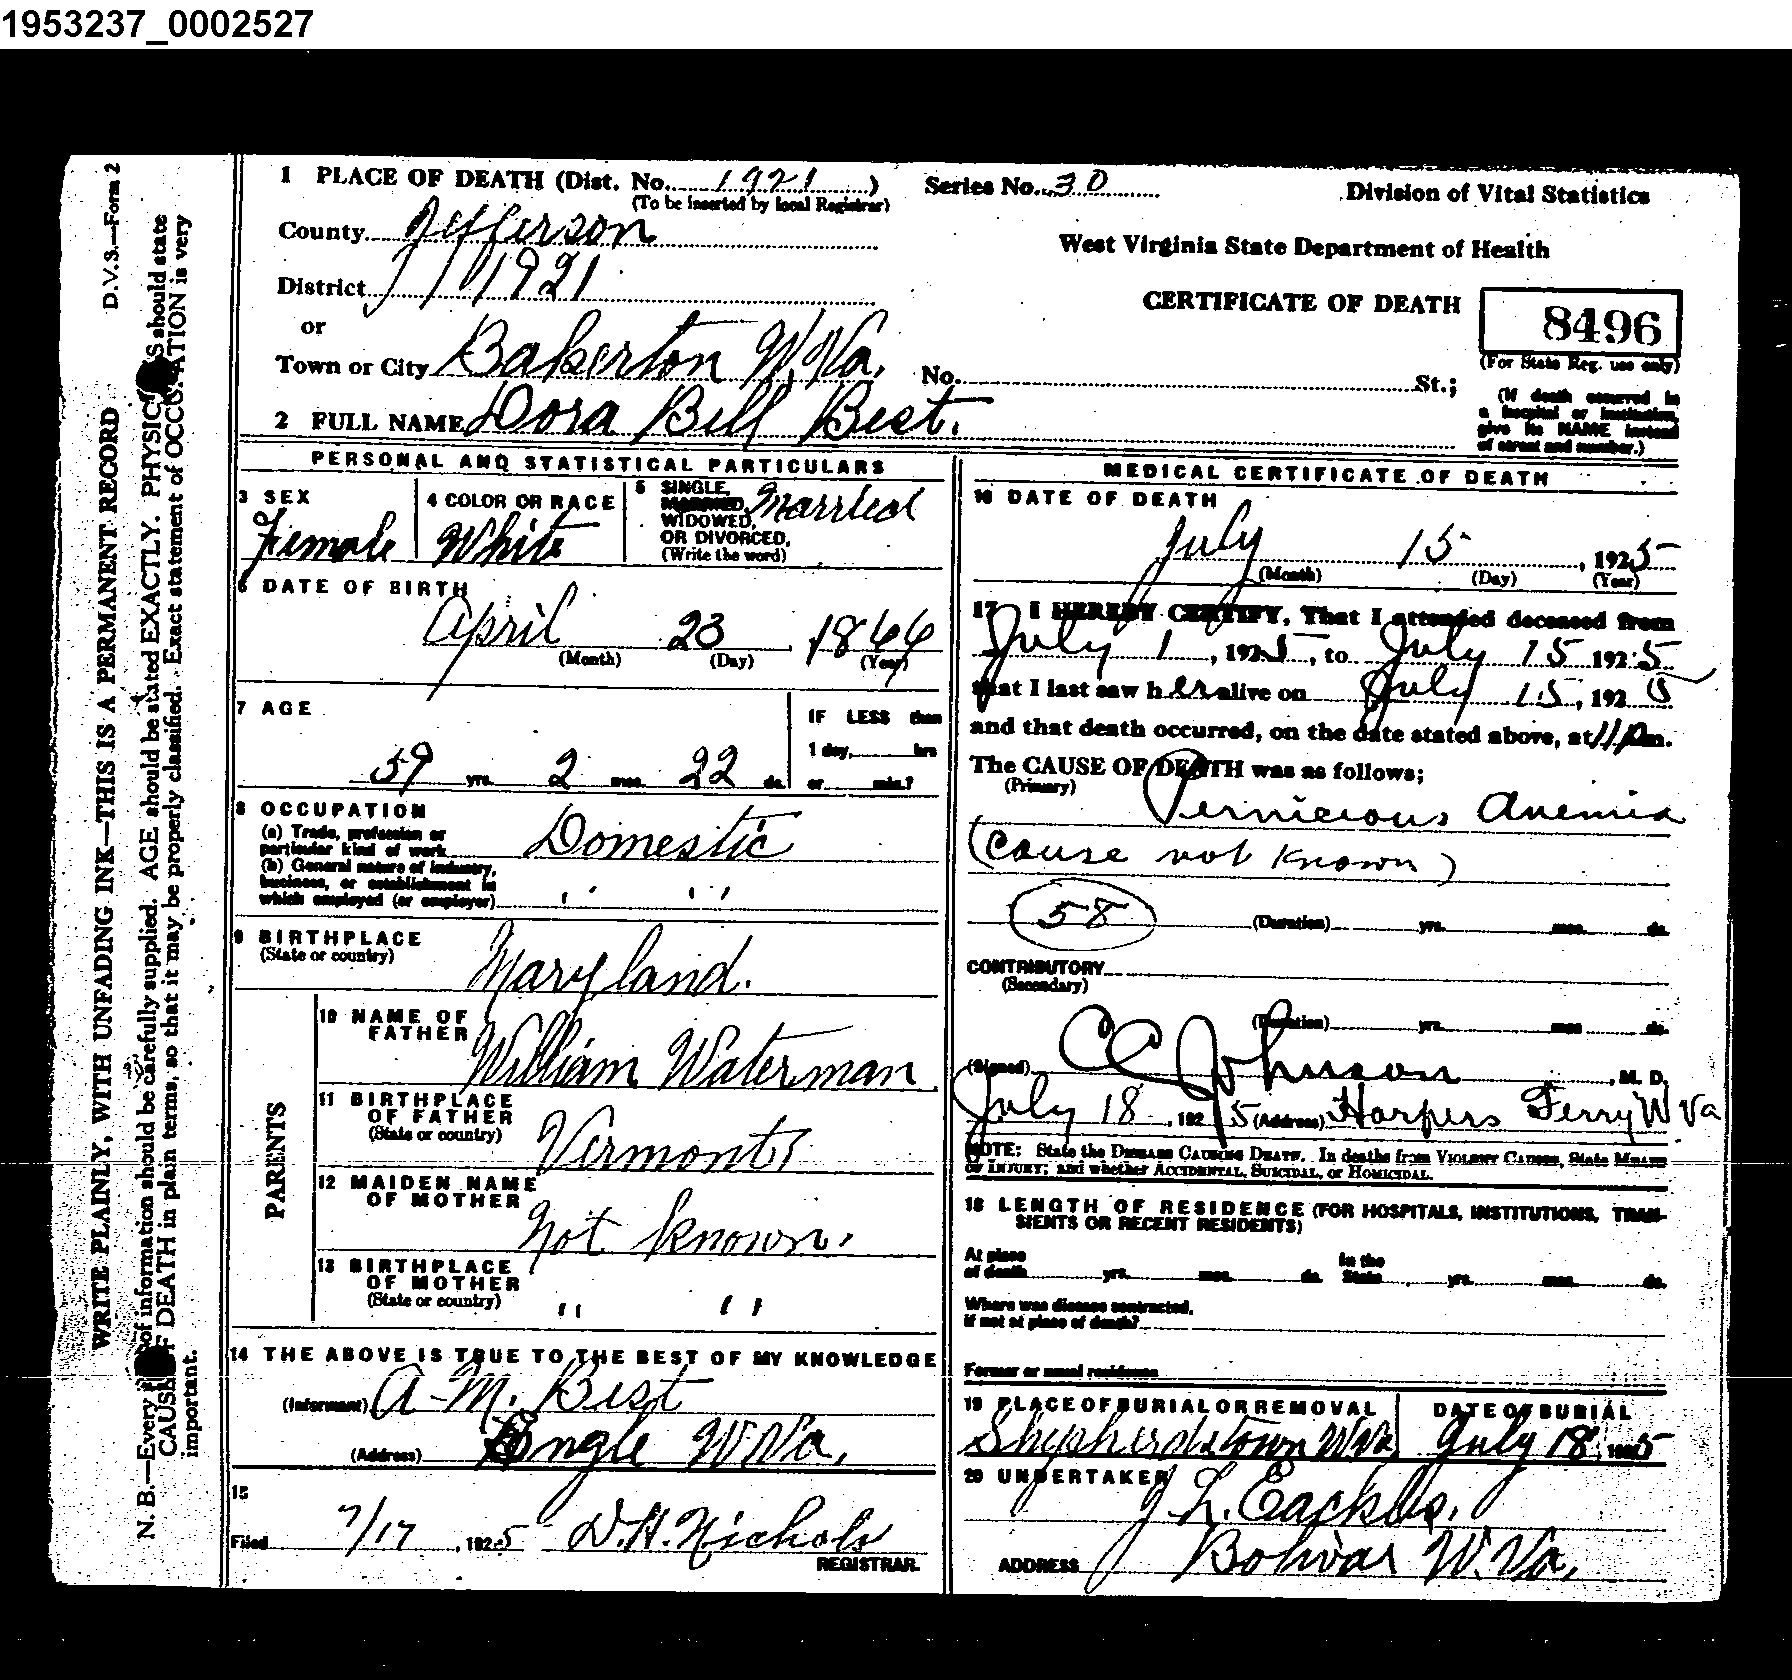 1953237_0002527
D.V.S.—Form 2
WRITE PLAINLY, WITH UNFADING INK—THIS IS A PERMANENT RECORD
N. B.—Every of information should be carefully supplied. AGE should be stated EXACTLY. PHYSIC S should state
CAUSE F DEATH in plain terms, so that it may be properly classified. Exact statement of OCCUPATION is very
important.
1 PLACE OF DEATH (Dist. No. 1921 )
(To be inserted by local Registrar)
Series No. 30
Division of Vital Statistics
County Jefferson
West Virginia State Department of Health
District 1921
CERTIFICATE OF DEATH
8496
(For State Reg. use only)
or
Town or City Bakerton W.Va.
No. St.;
(If death occurred in
a hospital or institution,
give its NAME instead
of street and number.)
2 FULL NAME Dora Bell Best.
PERSONAL AND STATISTICAL PARTICULARS
3 SEX
Female
4 COLOR OR RACE
White
5 SINGLE,
MARRIED,
WIDOWED,
OR DIVORCED,
(Write the word)
Married
6 DATE OF BIRTH
April 23 1866
(Month) (Day) (Year)
7 AGE
59 yrs. 2 mos. 22 ds.
IF LESS than
1 day, hrs
or min.?
8 OCCUPATION
(a) Trade, profession or
particular kind of work
Domestic
(b) General nature of industry,
business, or establishment in
which employed (or employer)
" "
9 BIRTHPLACE
(State or country)
Maryland.
PARENTS
10 NAME OF
FATHER
William Waterman
11 BIRTHPLACE
OF FATHER
(State or country)
Vermont
12 MAIDEN NAME
OF MOTHER
Not known.
13 BIRTHPLACE
OF MOTHER
(State or country)
" "
14 THE ABOVE IS TRUE TO THE BEST OF MY KNOWLEDGE
(Informant) A. M. Best
(Address) Engle W.Va.
15
Filed 7/17, 1925 D.H. Nichols
REGISTRAR.
MEDICAL CERTIFICATE OF DEATH
16 DATE OF DEATH
July 15, 1925
(Month) (Day) (Year)
17 I HEREBY CERTIFY, That I attended deceased from
July 1, 1925, to July 15 1925
that I last saw her alive on July 15, 1925
and that death occurred, on the date stated above, at 11 Pm.
The CAUSE OF DEATH was as follows;
(Primary)
Pernicious Anemia
(Cause not Known)
58
(Duration) yrs. mos. ds.
CONTRIBUTORY
(Secondary)
(Duration) yrs. mos. ds.
(Signed) CC Johnson, M. D.
July 18, 1925 (Address) Harpers Ferry W Va
NOTE: State the DISEASE CAUSING DEATH. In deaths from VIOLENT CAUSES, State MEANS
OF INJURY; and whether ACCIDENTAL, SUICIDAL, or HOMICIDAL.
18 LENGTH OF RESIDENCE (FOR HOSPITALS, INSTITUTIONS, TRAN-
SIENTS OR RECENT RESIDENTS)
At place
of death yrs. mos. ds.
In the
State yrs. mos. ds.
Where was disease contracted,
if not at place of death?
Former or usual residence
19 PLACE OF BURIAL OR REMOVAL
Shepherdstown W Va
DATE OF BURIAL
July 18, 1925
20 UNDERTAKER
J. L. Eackles.
ADDRESS
Bolivar W.Va.